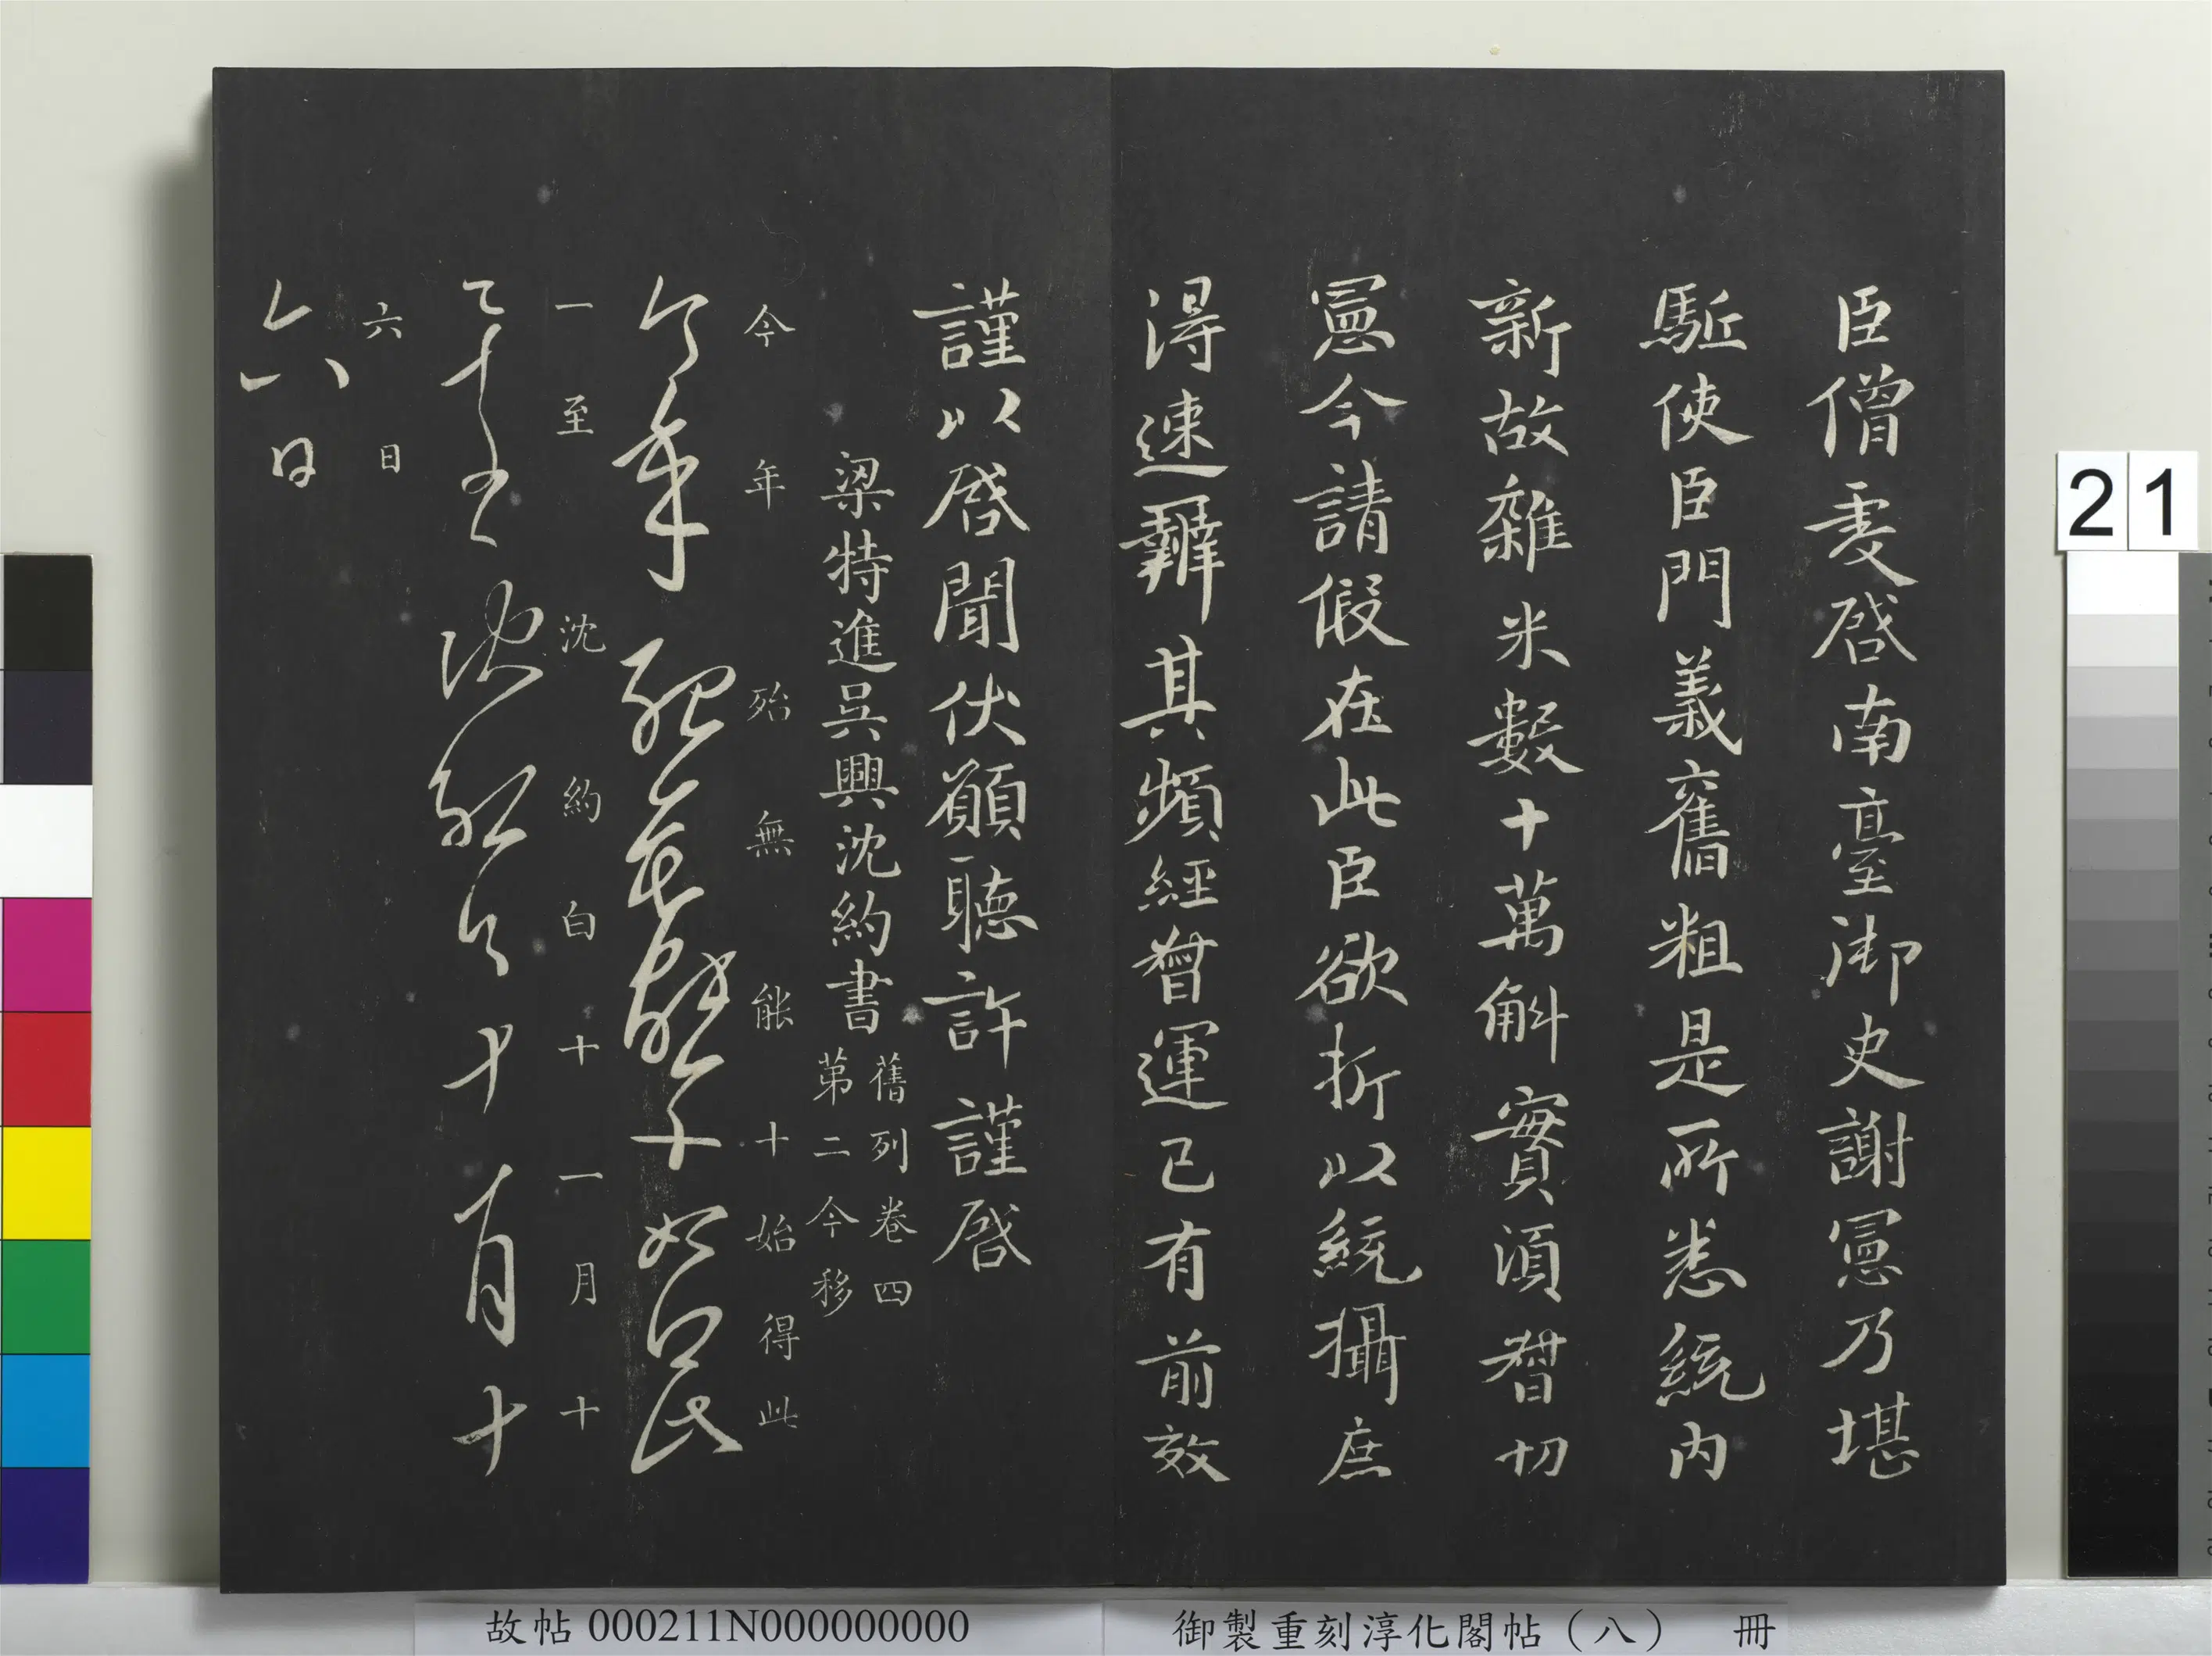 臣僧虔啓南臺御史謝憲乃堪
駈使臣門義舊粗是所悉統内
新故雜米數十萬斛實須督切
憲今請假在此臣欲折以統攝庶
得速辦其頻經督運已有前效
謹以啓聞伏願聽許謹啓
梁特進吳興沈約書
舊列卷四
第二今移
今年殆無能十始得此
今年殆無能十始得此
一至沈約白十一月十
一至沈約白十一月十
六日
六日
21
故帖 000211N000000000
御製重刻淳化閣帖（八） 冊